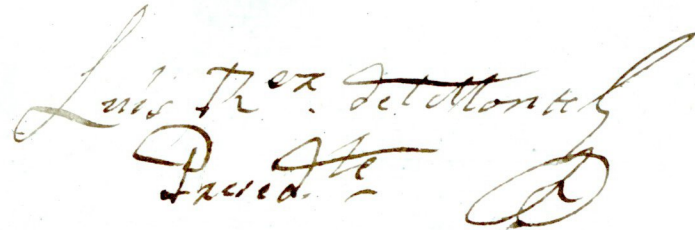 Luis Rez. del Monte
Presidte